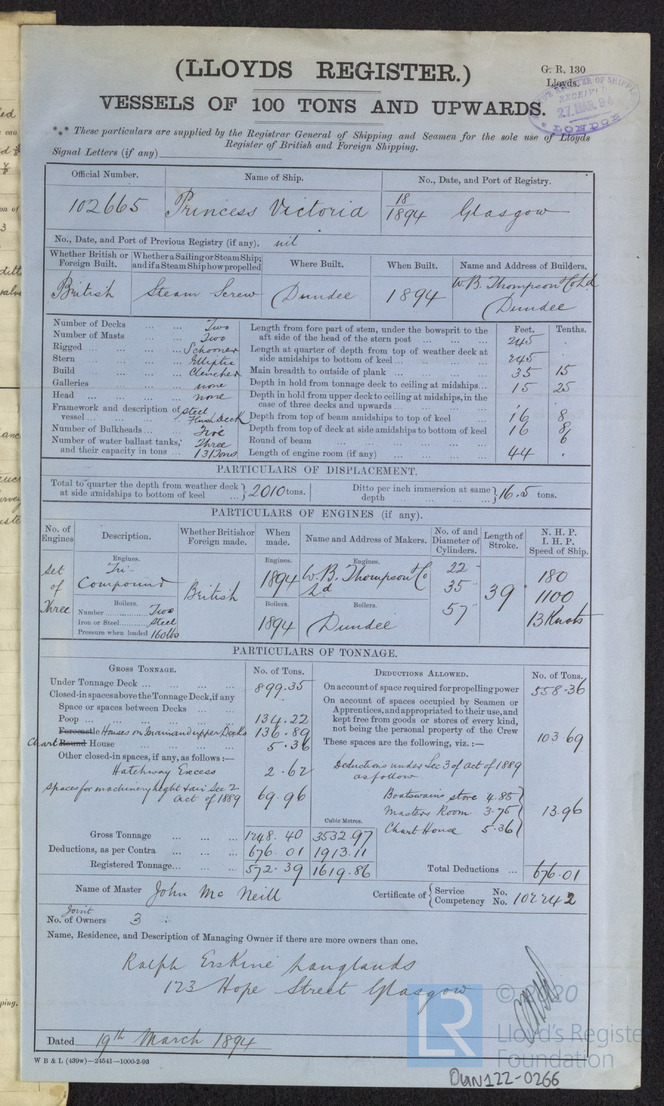 (LLOYDS REGISTER.)
G. R. 130
Lloyds.
VESSELS OF 100 TONS AND UPWARDS.
RECEIVED
27 MAR. 94
LONDON
*** These particulars are supplied by the Registrar General of Shipping and Seamen for the sole use of Lloyds
Register of British and Foreign Shipping.
Signal Letters (if any)
Official Number. Name of Ship. No., Date, and Port of Registry.
102665 Princess Victoria 18/1894 Glasgow
No., Date, and Port of Previous Registry (if any). nil
Whether British or Foreign Built. Whether a Sailing or Steam Ship; and if a Steam Ship how propelled Where Built. When Built. Name and Address of Builders.
British Steam Screw Dundee 1894 W.B. Thompson & Co Ld Dundee
Feet. Tenths.
Number of Decks ... ... Two
Number of Masts ... ... Two
Rigged ... ... Schooner
Stern ... ... Elliptic
Build ... ... Clencher
Galleries ... ... none
Head ... ... none
Framework and description of vessel ... Steel Flush deck
Number of Bulkheads ... Five
Number of water ballast tanks, and their capacity in tons ... Three 131 tons
Length from fore part of stem, under the bowsprit to the aft side of the head of the stern post ... 245 .
Length at quarter of depth from top of weather deck at side amidships to bottom of keel ... 245
Main breadth to outside of plank ... 35 15
Depth in hold from tonnage deck to ceiling at midships ... 15 25
Depth in hold from upper deck to ceiling at midships, in the case of three decks and upwards ...
Depth from top of beam amidships to top of keel ... 16 8
Depth from top of deck at side amidships to bottom of keel 16 8
Round of beam ... 6
Length of engine room (if any) ... 44 .
PARTICULARS OF DISPLACEMENT.
Total to quarter the depth from weather deck at side amidships to bottom of keel ... 2010 tons. Ditto per inch immersion at same depth ... 16.5 tons.
PARTICULARS OF ENGINES (if any).
No. of Engines Description. Whether British or Foreign made. When made. Name and Address of Makers. No. of and Diameter of Cylinders. Length of Stroke. N. H. P. I. H. P. Speed of Ship.
Set of Three
Engines.
Tri-Compound
Boilers.
Number ... Two
Iron or Steel ... Steel
Pressure when loaded 160 lbs
British
Engines.
1894
Boilers.
1894
Engines.
W.B. Thompson & Co Ld
Boilers.
Dundee
22
35
57
39
180
1100
13 Knots
PARTICULARS OF TONNAGE.
GROSS TONNAGE. No. of Tons.
Under Tonnage Deck ... 899.35
Closed-in spaces above the Tonnage Deck, if any
Space or spaces between Decks ...
Poop ... 134.22
Forecastle Houses on Main and upper Decks 136.89
Chart Round House ... 5.36
Other closed-in spaces, if any, as follows:—
Hatchway Excess 2.62
Spaces for machinery light & air Sec 2 Act of 1889 69.96
Cubic Metres.
Gross Tonnage ... 1248.40 3532.97
Deductions, as per Contra ... 676.01 1913.11
Registered Tonnage ... 572.39 1619.86
DEDUCTIONS ALLOWED. No. of Tons.
On account of space required for propelling power 558.36
On account of spaces occupied by Seamen or Apprentices, and appropriated to their use, and kept free from goods or stores of every kind, not being the personal property of the Crew 103.69
These spaces are the following, viz.:—
Deductions under Sec 3 of Act of 1889
as follow
Boatswains store 4.85
Masters Room 3.75
Chart House 5.36
13.96
Total Deductions ... 676.01
Name of Master John Mc Neill
Certificate of Service No.
Competency No. 102242
Joint
No. of Owners 3
Name, Residence, and Description of Managing Owner if there are more owners than one.
Ralph Erskine Langlands
123 Hope Street Glasgow
Dated 19th March 1894
W B & L (439w)—24541—1000-2-93
LR
© 2020
Lloyd's Register
Foundation
DUN122-0266